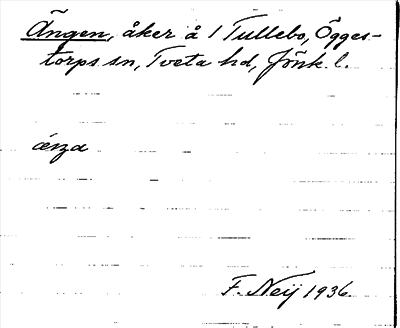 Ängen, åker å 1 Tullebo, Ögges-
torps sn, Tveta hd, Jönk. l.
äŋa
F. Neij 1936.